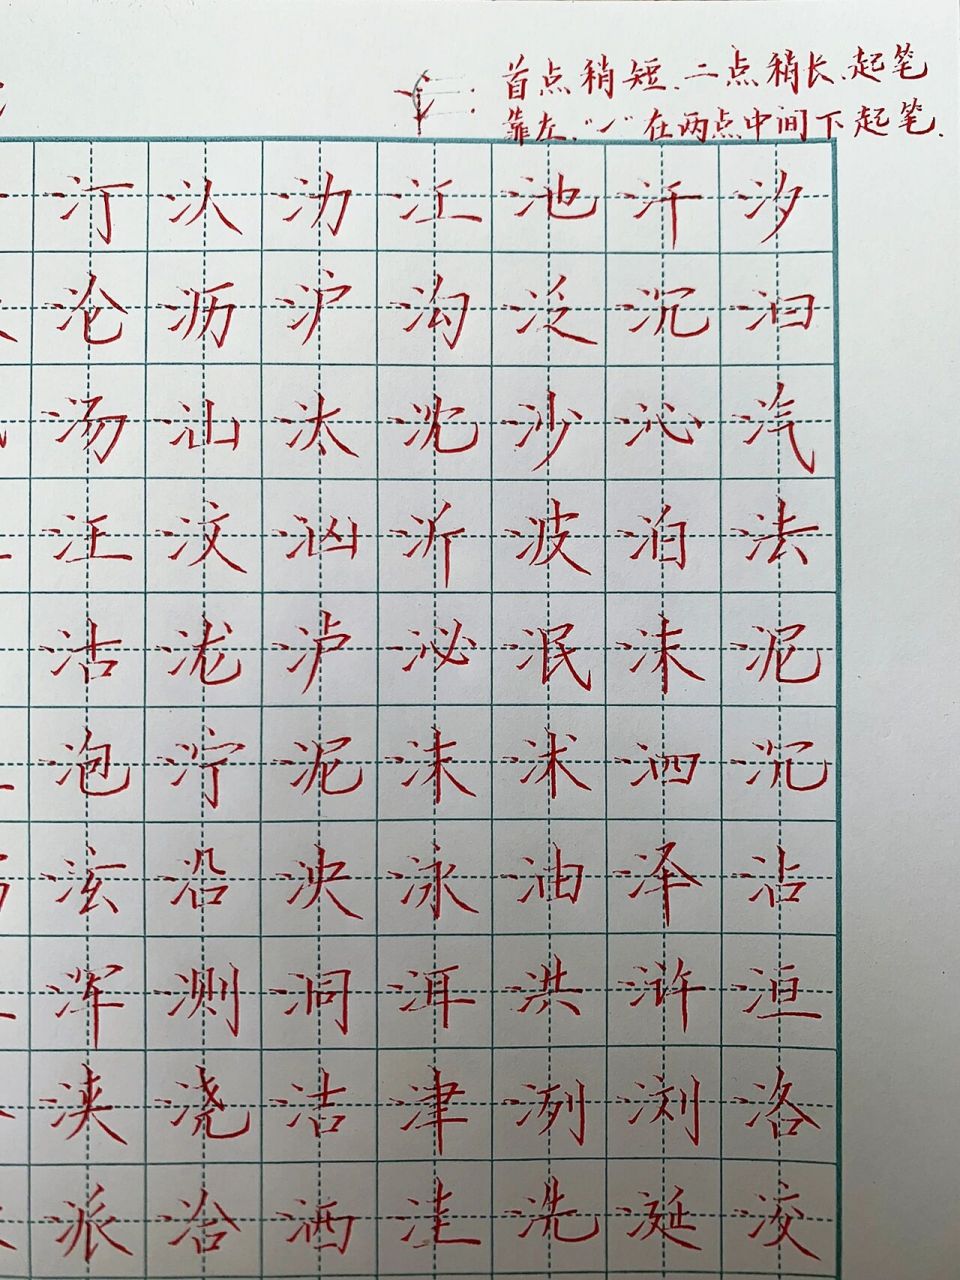 首点稍短、二点稍长、起笔
靠左、“㇀”在两点中间下起笔.
汀 汃 沥 江 池 汗 汐
沦 沥 沪 沟 泛 沉 汩
汤 汕 汰 沈 沙 沁 汽
汪 汶 汹 沂 波 泊 法
沽 泷 泸 泌 泯 沫 泥
泡 泞 泥 沫 沭 泗 沉
泫 沿 泱 泳 油 泽 沾
浑 测 洞 洱 洪 浒 洹
浃 浇 洁 津 洌 浏 洛
派 洽 洒 洼 洗 涎 洨